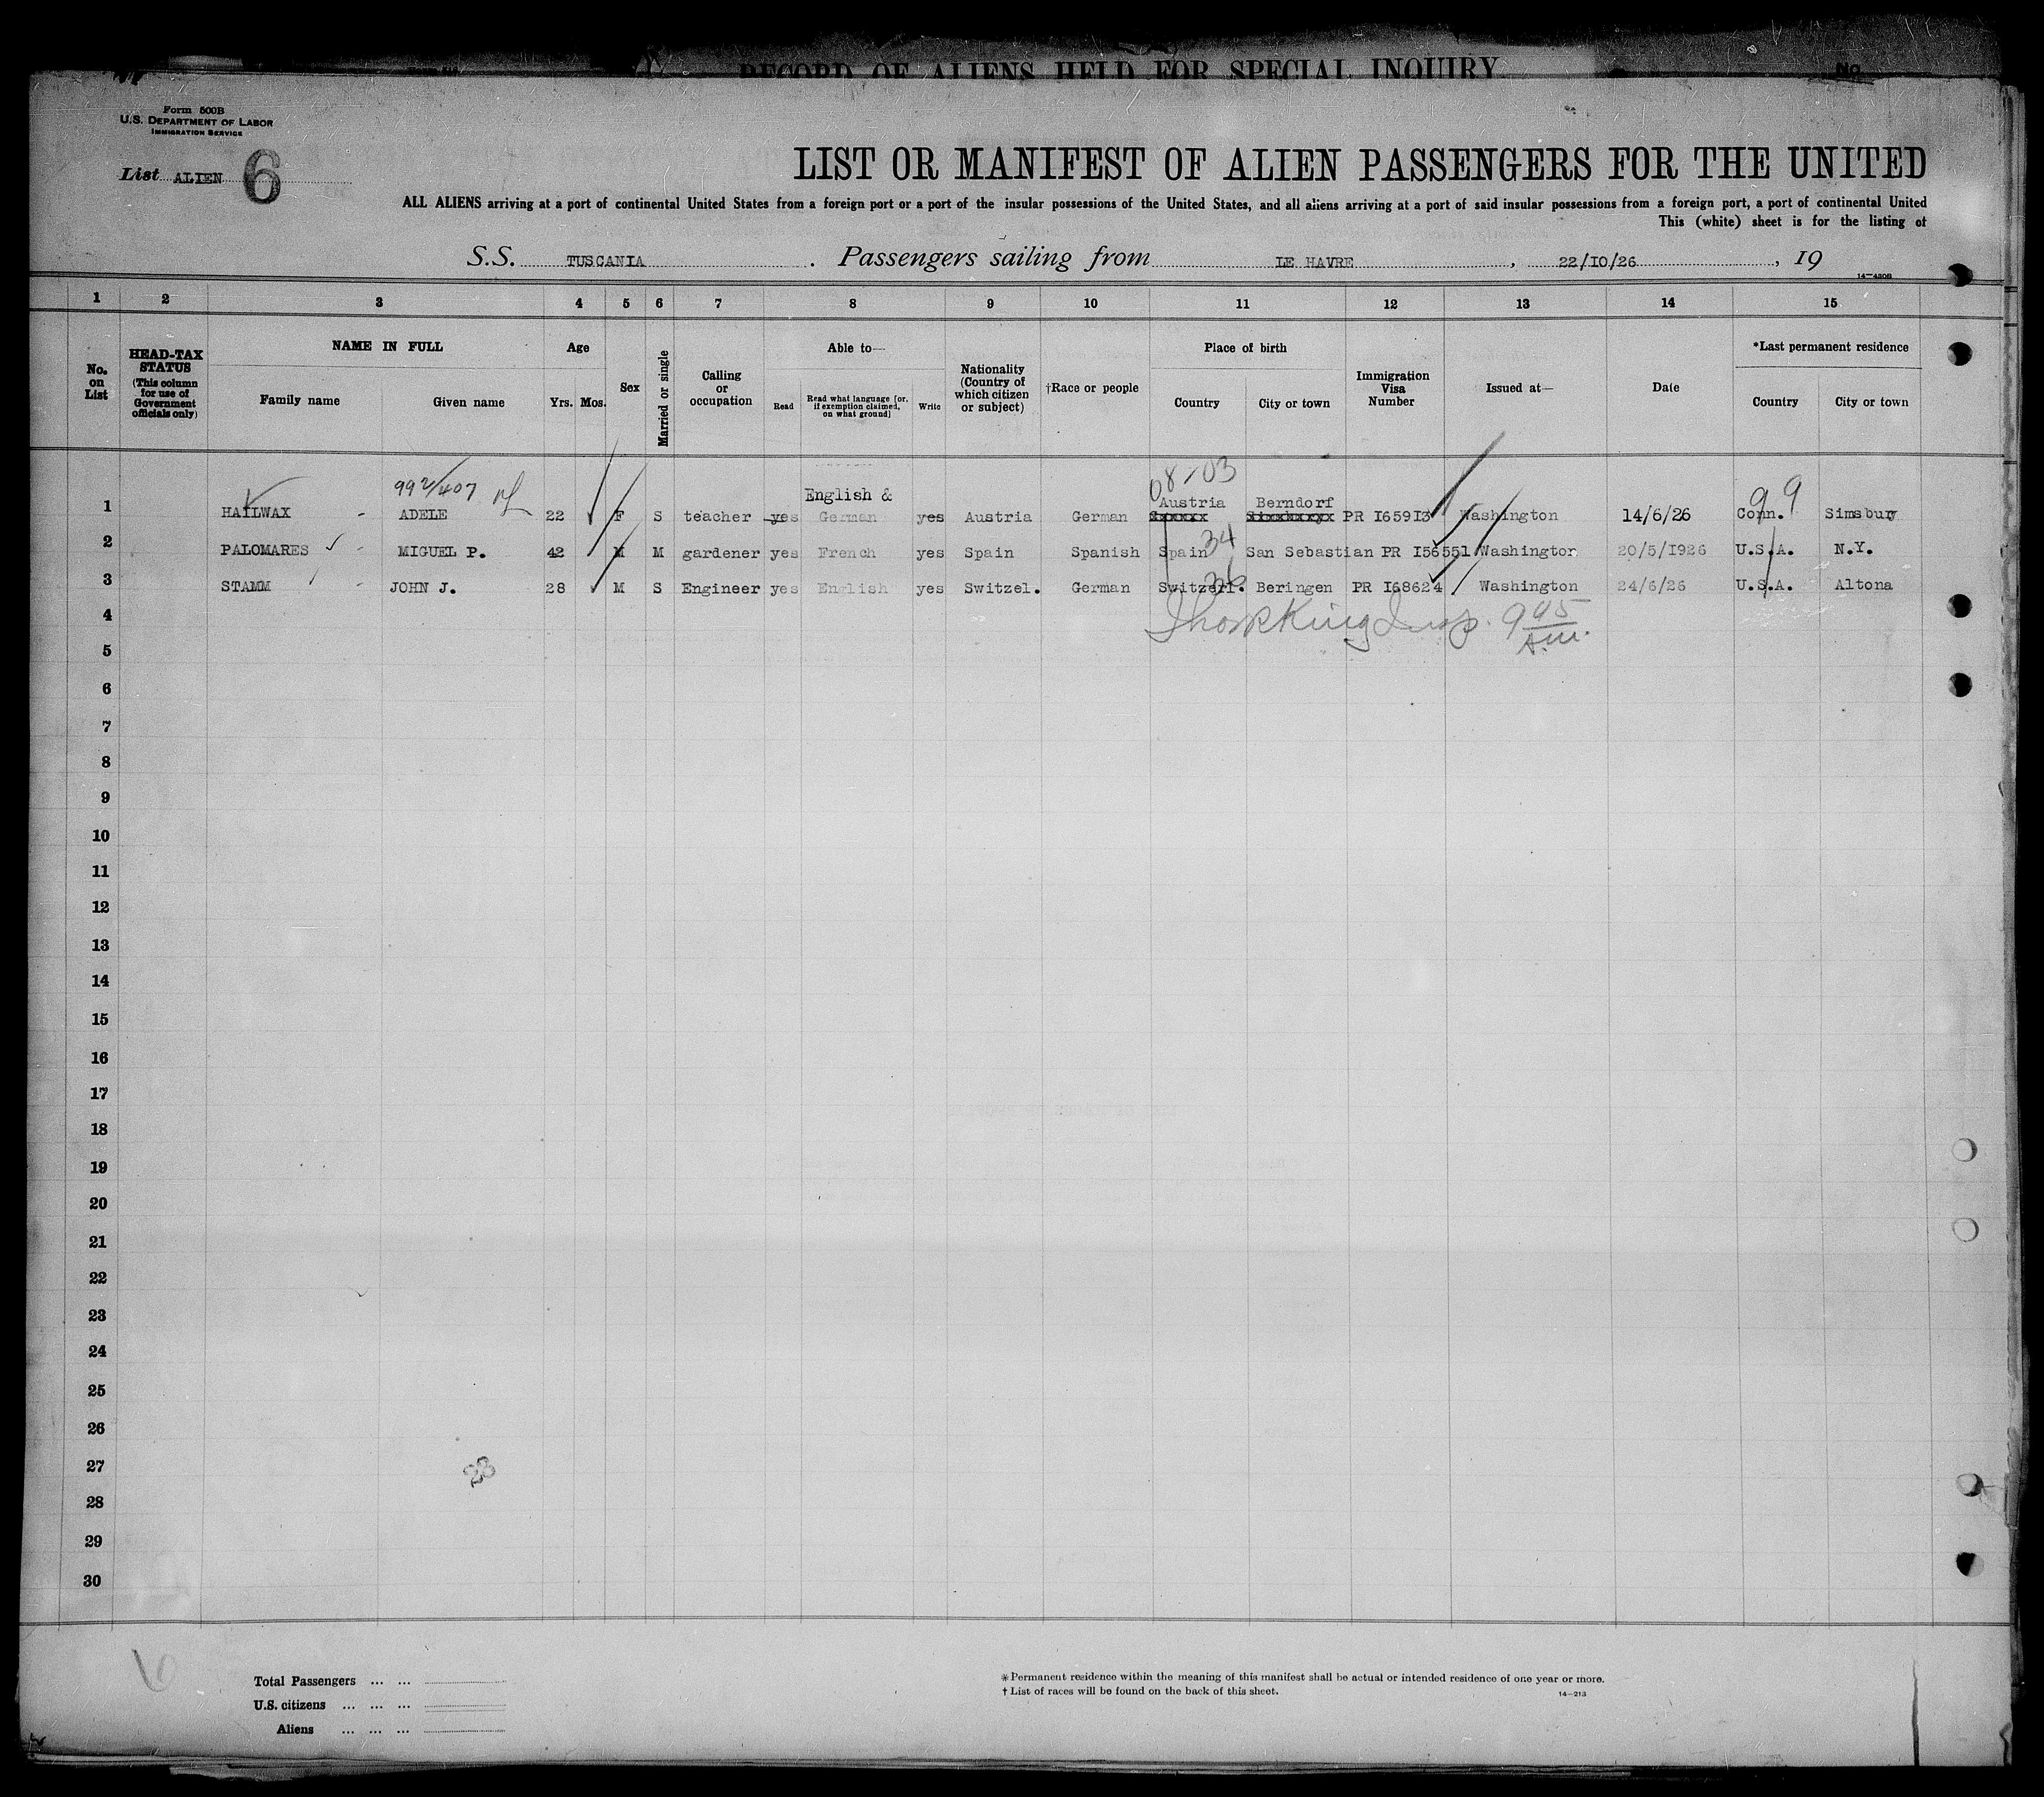 RECORD OF ALIENS HELD FOR SPECIAL INQUIRY
No
Form 500B
U.S. DEPARTMENT OF LABOR
IMMIGRATION SERVICE
List ALIEN 6
LIST OR MANIFEST OF ALIEN PASSENGERS FOR THE UNITED
ALL ALIENS arriving at a port of continental United States from a foreign port or a port of the insular possessions of the United States, and all aliens arriving at a port of said insular possessions from a foreign port, a port of continental United
This (white) sheet is for the listing of
S.S. TUSCANIA. Passengers sailing from LE HAVRE, 22/10/26, 19
14-430B
1 2 3 4 5 6 7 8 9 10 11 12 13 14 15
No. on List
HEAD-TAX STATUS (This column for use of Government officials only)
NAME IN FULL
Family name Given name
Age
Yrs. Mos.
Sex
Married or single
Calling or occupation
Able to—
Read Read what language [or, if exemption claimed, on what ground] Write
Nationality (Country of which citizen or subject)
†Race or people
Place of birth
Country City or town
Immigration Visa Number
Issued at—
Date
*Last permanent residence
Country City or town
992/407
08-03
99
English &
Austria Berndorf
1 HAILWAX - ADELE 22 F S teacher yes German yes Austria German PR I659I3 Washington 14/6/26 Conn. Simsbury
34
2 PALOMARES - MIGUEL P. 42 M M gardener yes French yes Spain Spanish Spain San Sebastian PR I56551 Washington 20/5/1926 U.S.A. N.Y.
36
3 STAMM - JOHN J. 28 M S Engineer yes English yes Switzel. German Switzerl. Beringen PR I68624 Washington 24/6/26 U.S.A. Altona
4
Insp. 9 05 A.M.
5
6
7
8
9
10
11
12
13
14
15
16
17
18
19
20
21
22
23
24
25
26
27
28
29
30
Total Passengers ... ...
U.S. citizens ... ... ...
Aliens ... ... ...
*Permanent residence within the meaning of this manifest shall be actual or intended residence of one year or more.
†List of races will be found on the back of this sheet.
14-213